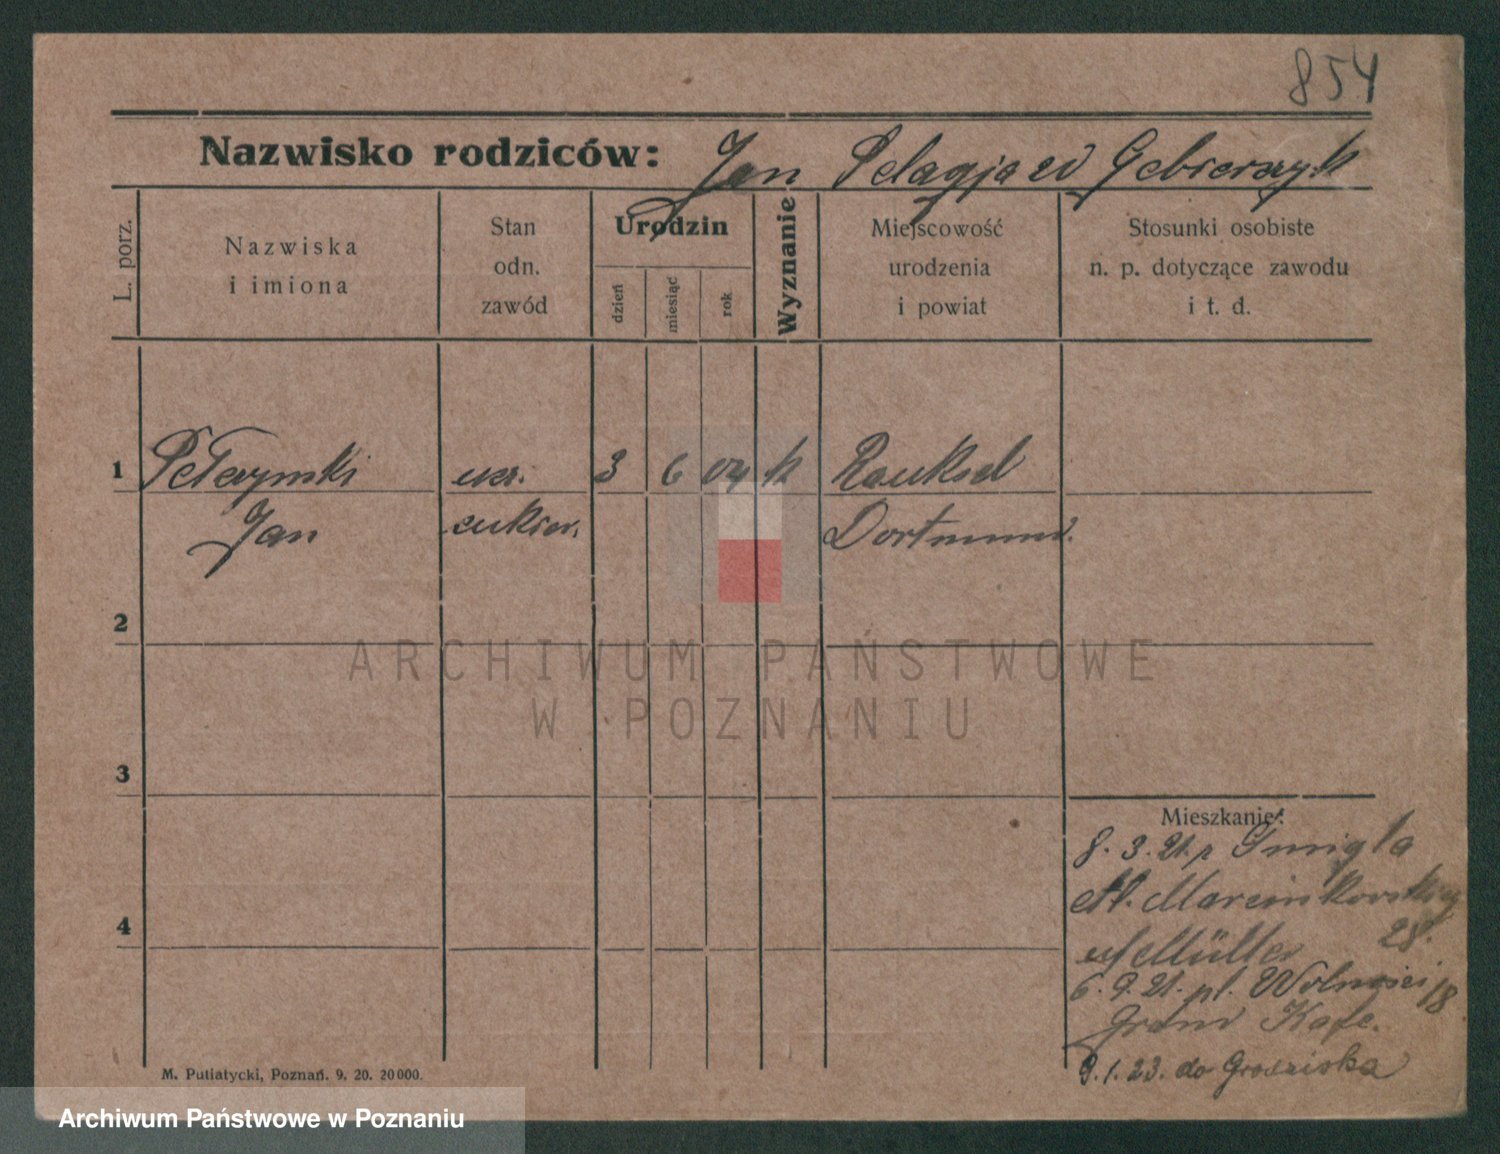 854
Nazwisko rodziców: Jan Pelagja zd Gebierczyk
L. porz.
Nazwiska
i imiona
Stan
odn.
zawód
Urodzin
dzień
miesiąc
rok
Wyznanie
Miejscowość
urodzenia
i powiat
Stosunki osobiste
n. p. dotyczące zawodu
i t. d.
1 Pełczynski ucz. 3 6 04 k Rauksel
Jan cukier. Dortmund.
2
3
4
Mieszkanie:
8. 3. 21. z Smigla
Marcinkowskiej
28.
Müller
6. 9. 21. pl. Wolności 18
Grand Kafe.
9. 1. 23. do Grodziska
M. Putiatycki, Poznań. 9. 20. 20000.
ARCHIWUM PAŃSTWOWE
W POZNANIU
Archiwum Państwowe w Poznaniu